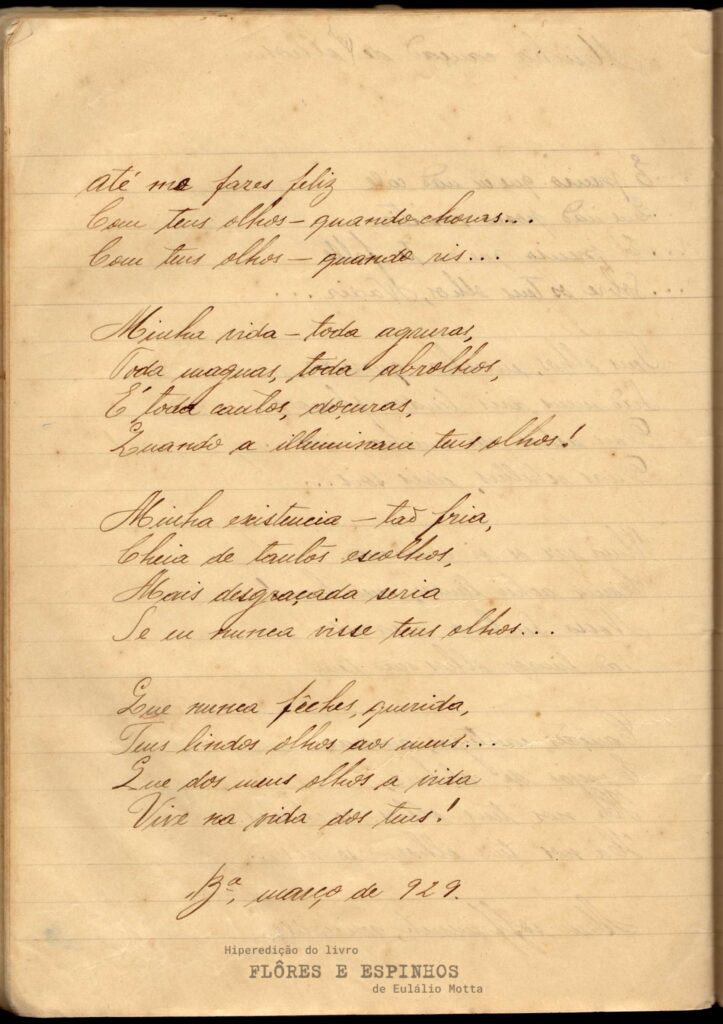 Até me fares feliz
Com teus olhos – quando choras...
Com teus olhos – quando ris...
Minha vida – toda agruras,
Toda maguas, toda abrolhos,
É toda cantos, doçuras,
Quando a illuminam teus olhos!
Minha existencia – tão fria,
Cheia de tantos escolhos,
Mais desgraçada seria
Se eu nunca visse teus olhos...
Que nunca fêches, querida,
Teus lindos olhos aos meus...
Que dos meus olhos a vida
Vive na vida dos teus!
Bª, março de 929.
Hiperedição do livro
FLÔRES E ESPINHOS
de Eulálio Motta